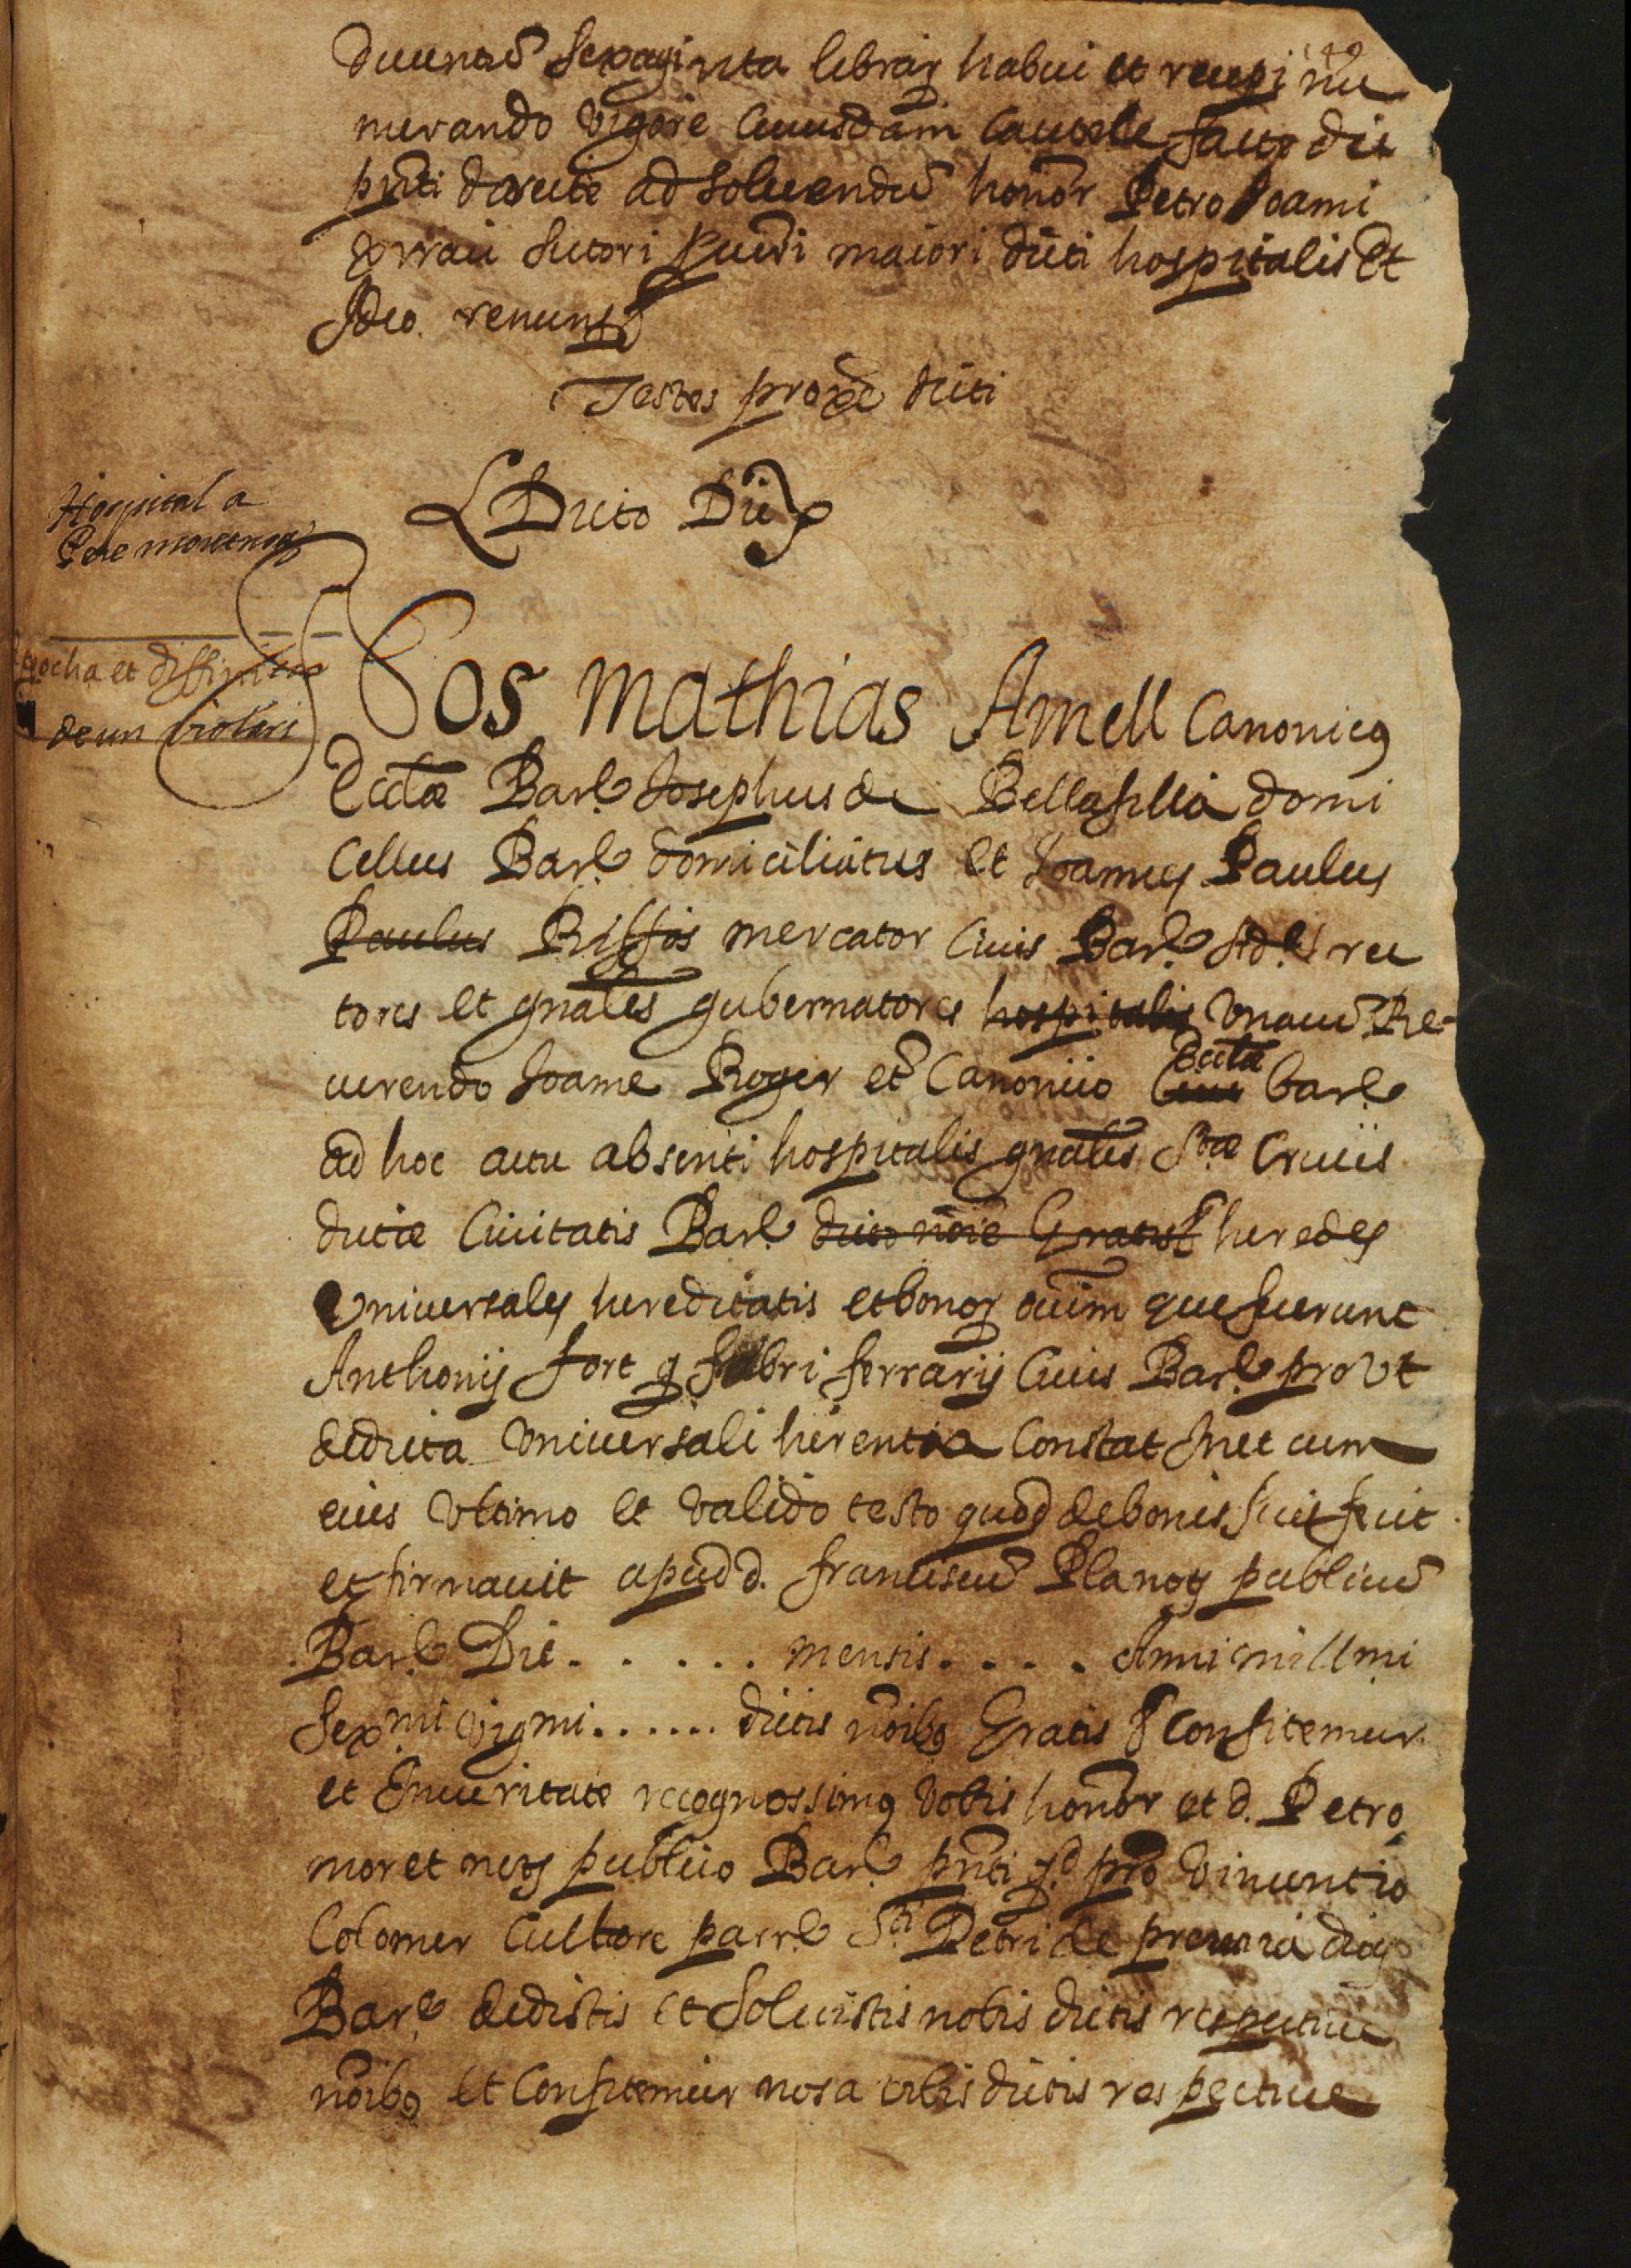 149
Ducentū sexaginta librarꝝ habui et recepi nu
merando vigore cuiusdam cautele facte die
pn̄ti directe ad solvendū honor̄ Petro Joanni
sutori Priori maiori dicti hospitalis Et
Ideo renunƺ
Testes proxe dicti
Dicto Die
Hospital a
Pere moret noṯ
Apocha et diffinitio
de un violari
Nos Mathias Amell Canonicꝰ
Ecctæ Barꝭ Josephus de Bellafilla domi
cellus Barꝭ domiciliatus et Joannes Paulus
Paulus Riffos mercator civis Barꝭ rec
tores et gn̄ales gubernatores hospitalis vnacū Re-
verendo Joanne Roger et̄ canonico Ecctæ barꝭ
ad hoc actu absenti hospitalis gn̄alis Stæ Crucis
dictæ Civitatis Barꝭ dicto nōie Gratis heredes
Universales hereditatis et bonoꝝ oīum que fuerunt
Anthonij fort q̊ fabri ferrarij Civis Barꝭ pro vt
de dicta Universali herentia Constat Mec cum
eius vltimo et valido testo quod de bonis suis fecit
et firmavit apud d. franciscū Planoṯ publicū
Barꝭ Die . . . . . . mensis . . . . Anni millmi
Sexmi vigmi . . . . . . dictis nōibꝰ Gratis & confitemur
et In veritate recognossimꝰ vobis honor̄ et d. Petro
moret noṯ publico Barꝭ pn̄ti pro Vincentio
Colomer Cultore parrꝭ Sti Petri de premia dioꝭ
Barꝭ dedistis et solvistis nobis dictis respective
nōibꝰ et Confitemur nos a vobis dictis respective